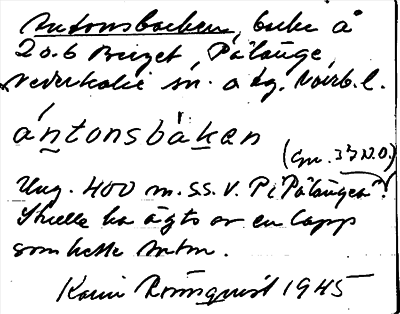 Antonsbacken, backe å
20.6 Berget, Pålänge,
Nederkalix sn. o tg. Norrb. l.
ántonsbàken
(Gm. 33 N.O.)
Ung. 400 m. SS. V. P i "Pålänge".
Skulle ha ägts av en lapp
som hette Anton.
Karin Rönnquist 1945